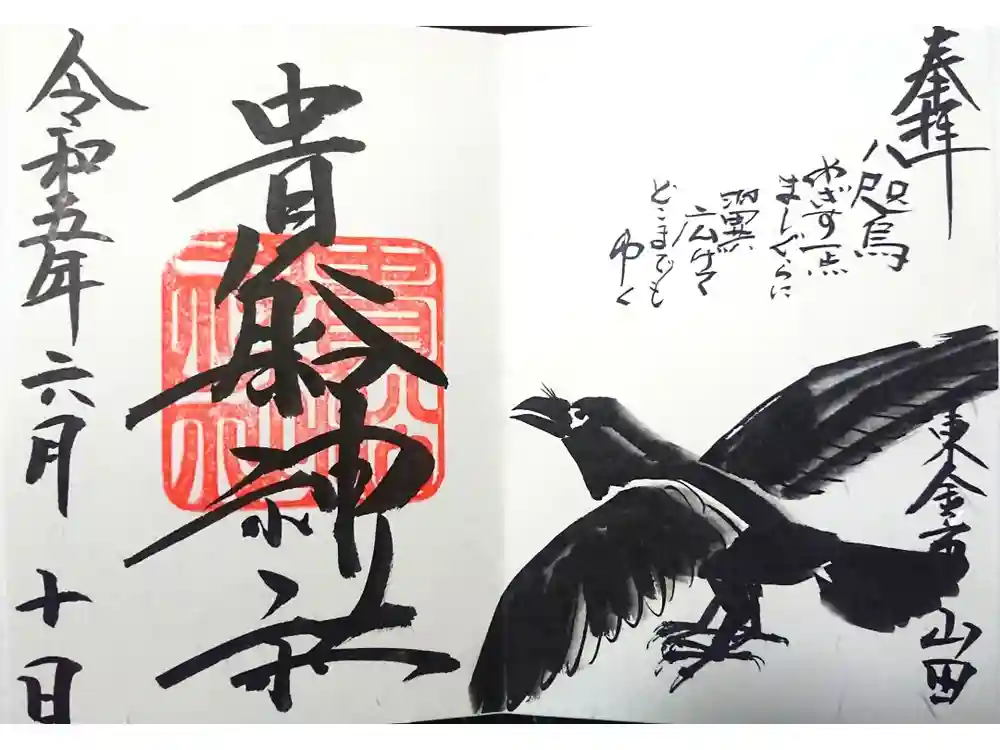 奉拝
八咫烏
めざす一点
ましぐらに
翼
広げて
どこまでも
ゆく
東金市 山田
貴船神社
令和五年 六月 十日